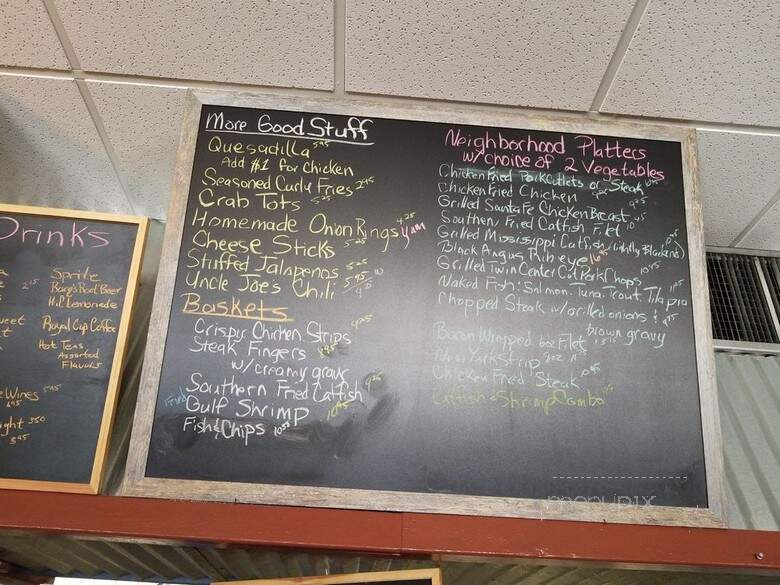 Drinks
Sprite
2.15 Barq's Root Beer
Hi-C Lemonade
Royal Cup Coffee
Hot Teas
Assorted
Flavors
Wines
More Good Stuff
Quesadilla 5.95
Add $1 for Chicken
Seasoned Curly Fries 2.45
Crab Tots 5.25
Homemade Onion Rings 4.25 yum
Cheese Sticks 5.25
Stuffed Jalapenos 5.25
Uncle Joe's Chili 5.95
Baskets
Crispy Chicken Strips 9.25
Steak Fingers 8.45
w/creamy gravy
Southern Fried Catfish 9.25
Fried Gulf Shrimp 10.45
Fish & Chips 10.50
Neighborhood Platters
w/choice of 2 Vegetables
Chicken Fried Pork Cutlets or Steak
Chicken Fried Chicken
Grilled Santa Fe Chicken Breast
Southern Fried Catfish Filet
Grilled Mississippi Catfish (lightly Blackend)
Black Angus Ribeye
Grilled Twin Center Cut Pork Chops 10.45
Naked Fish: Salmon, Tuna, Trout, Tilapia
Chopped Steak w/grilled onions &
brown gravy
Bacon Wrapped 6oz Filet
New York Strip 8oz
Chicken Fried Steak
Catfish & Shrimp Combo
menupix